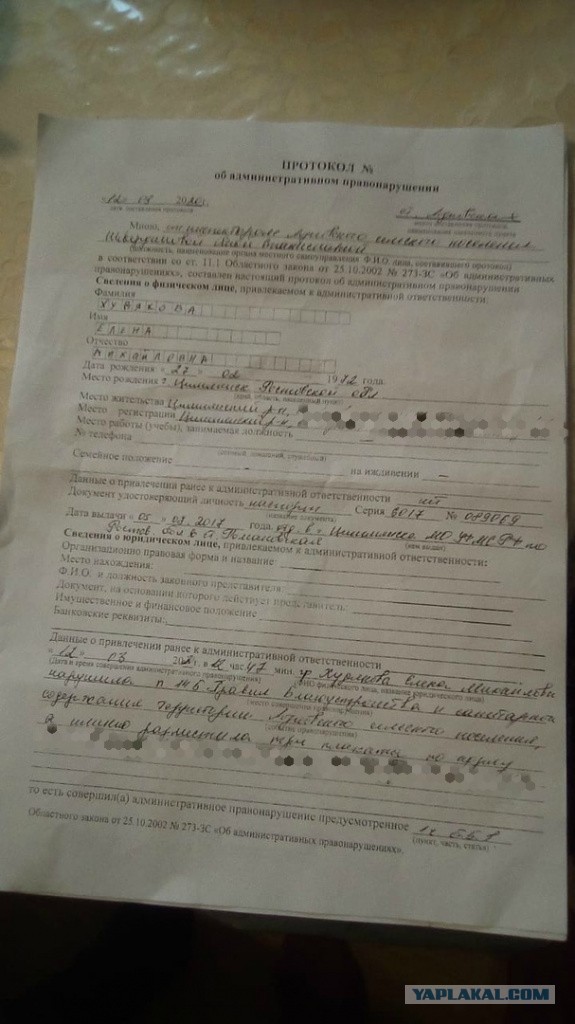 ПРОТОКОЛ №
об административном правонарушении
«12» 03 2020г.
дата составления протокола
Мною,
сельского поселения
(должность, наименование органа местного самоуправления, Ф.И.О. лица, составившего протокол)
в соответствии со ст. 11.1 Областного закона от 25.10.2002 № 273-ЗС «Об административных
правонарушениях», составлен настоящий протокол об административном правонарушении
Сведения о физическом лице, привлекаемом к административной ответственности:
Фамилия
Имя
ЕЛЕНА
Отчество
МИХАЙЛОВНА
Дата рождения « 27 » 02 1972 года.
Место рождения г. Цимлянск Ростовской обл.
(край, область, населенный пункт)
Место жительства Цимлянский р-н,
Место регистрации Цимлянский р-н,
Место работы (учебы), занимаемая должность
№ телефона
(сотовый, домашний, служебный)
Семейное положение – на иждивении –
Данные о привлечении ранее к административной ответственности нет
Документ удостоверяющий личность паспорт Серия 6017 № 089069
(название документа)
Дата выдачи « 05 » 03.2017 года
(кем выдан)
Сведения о юридическом лице, привлекаемом к административной ответственности:
Организационно правовая форма и название
Место нахождения:
Ф.И.О. и должность законного представителя
Документ, на основании которого действует представитель:
Имущественное и финансовое положение
Банковские реквизиты:
Данные о привлечении ранее к административной ответственности
« 12 » 03 в час. 47 мин. Елена Михайловна
(Дата и время совершения административного правонарушения) (ФИО физического лица, название юридического лица)
нарушила п Правил благоустройства и санитарного
содержания территории сельского поселения,
а именно разместила плакаты по адресу
то есть совершил(а) административное правонарушение предусмотренное
(пункт, часть, статья)
Областного закона от 25.10.2002 № 273-ЗС «Об административных правонарушениях».
YAPLAKAL.COM